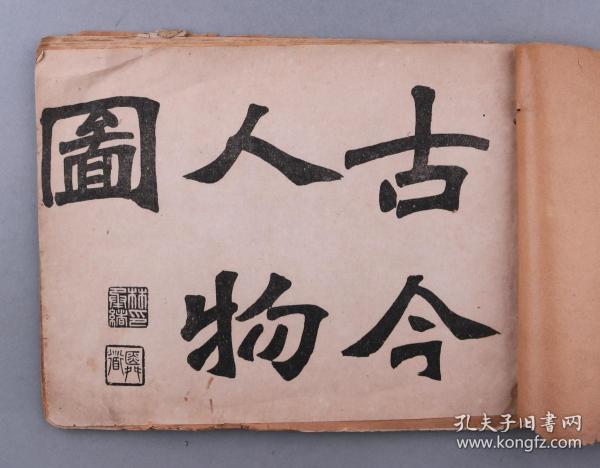 古今
人物
圖
孔夫子旧书网
www.kongfz.com